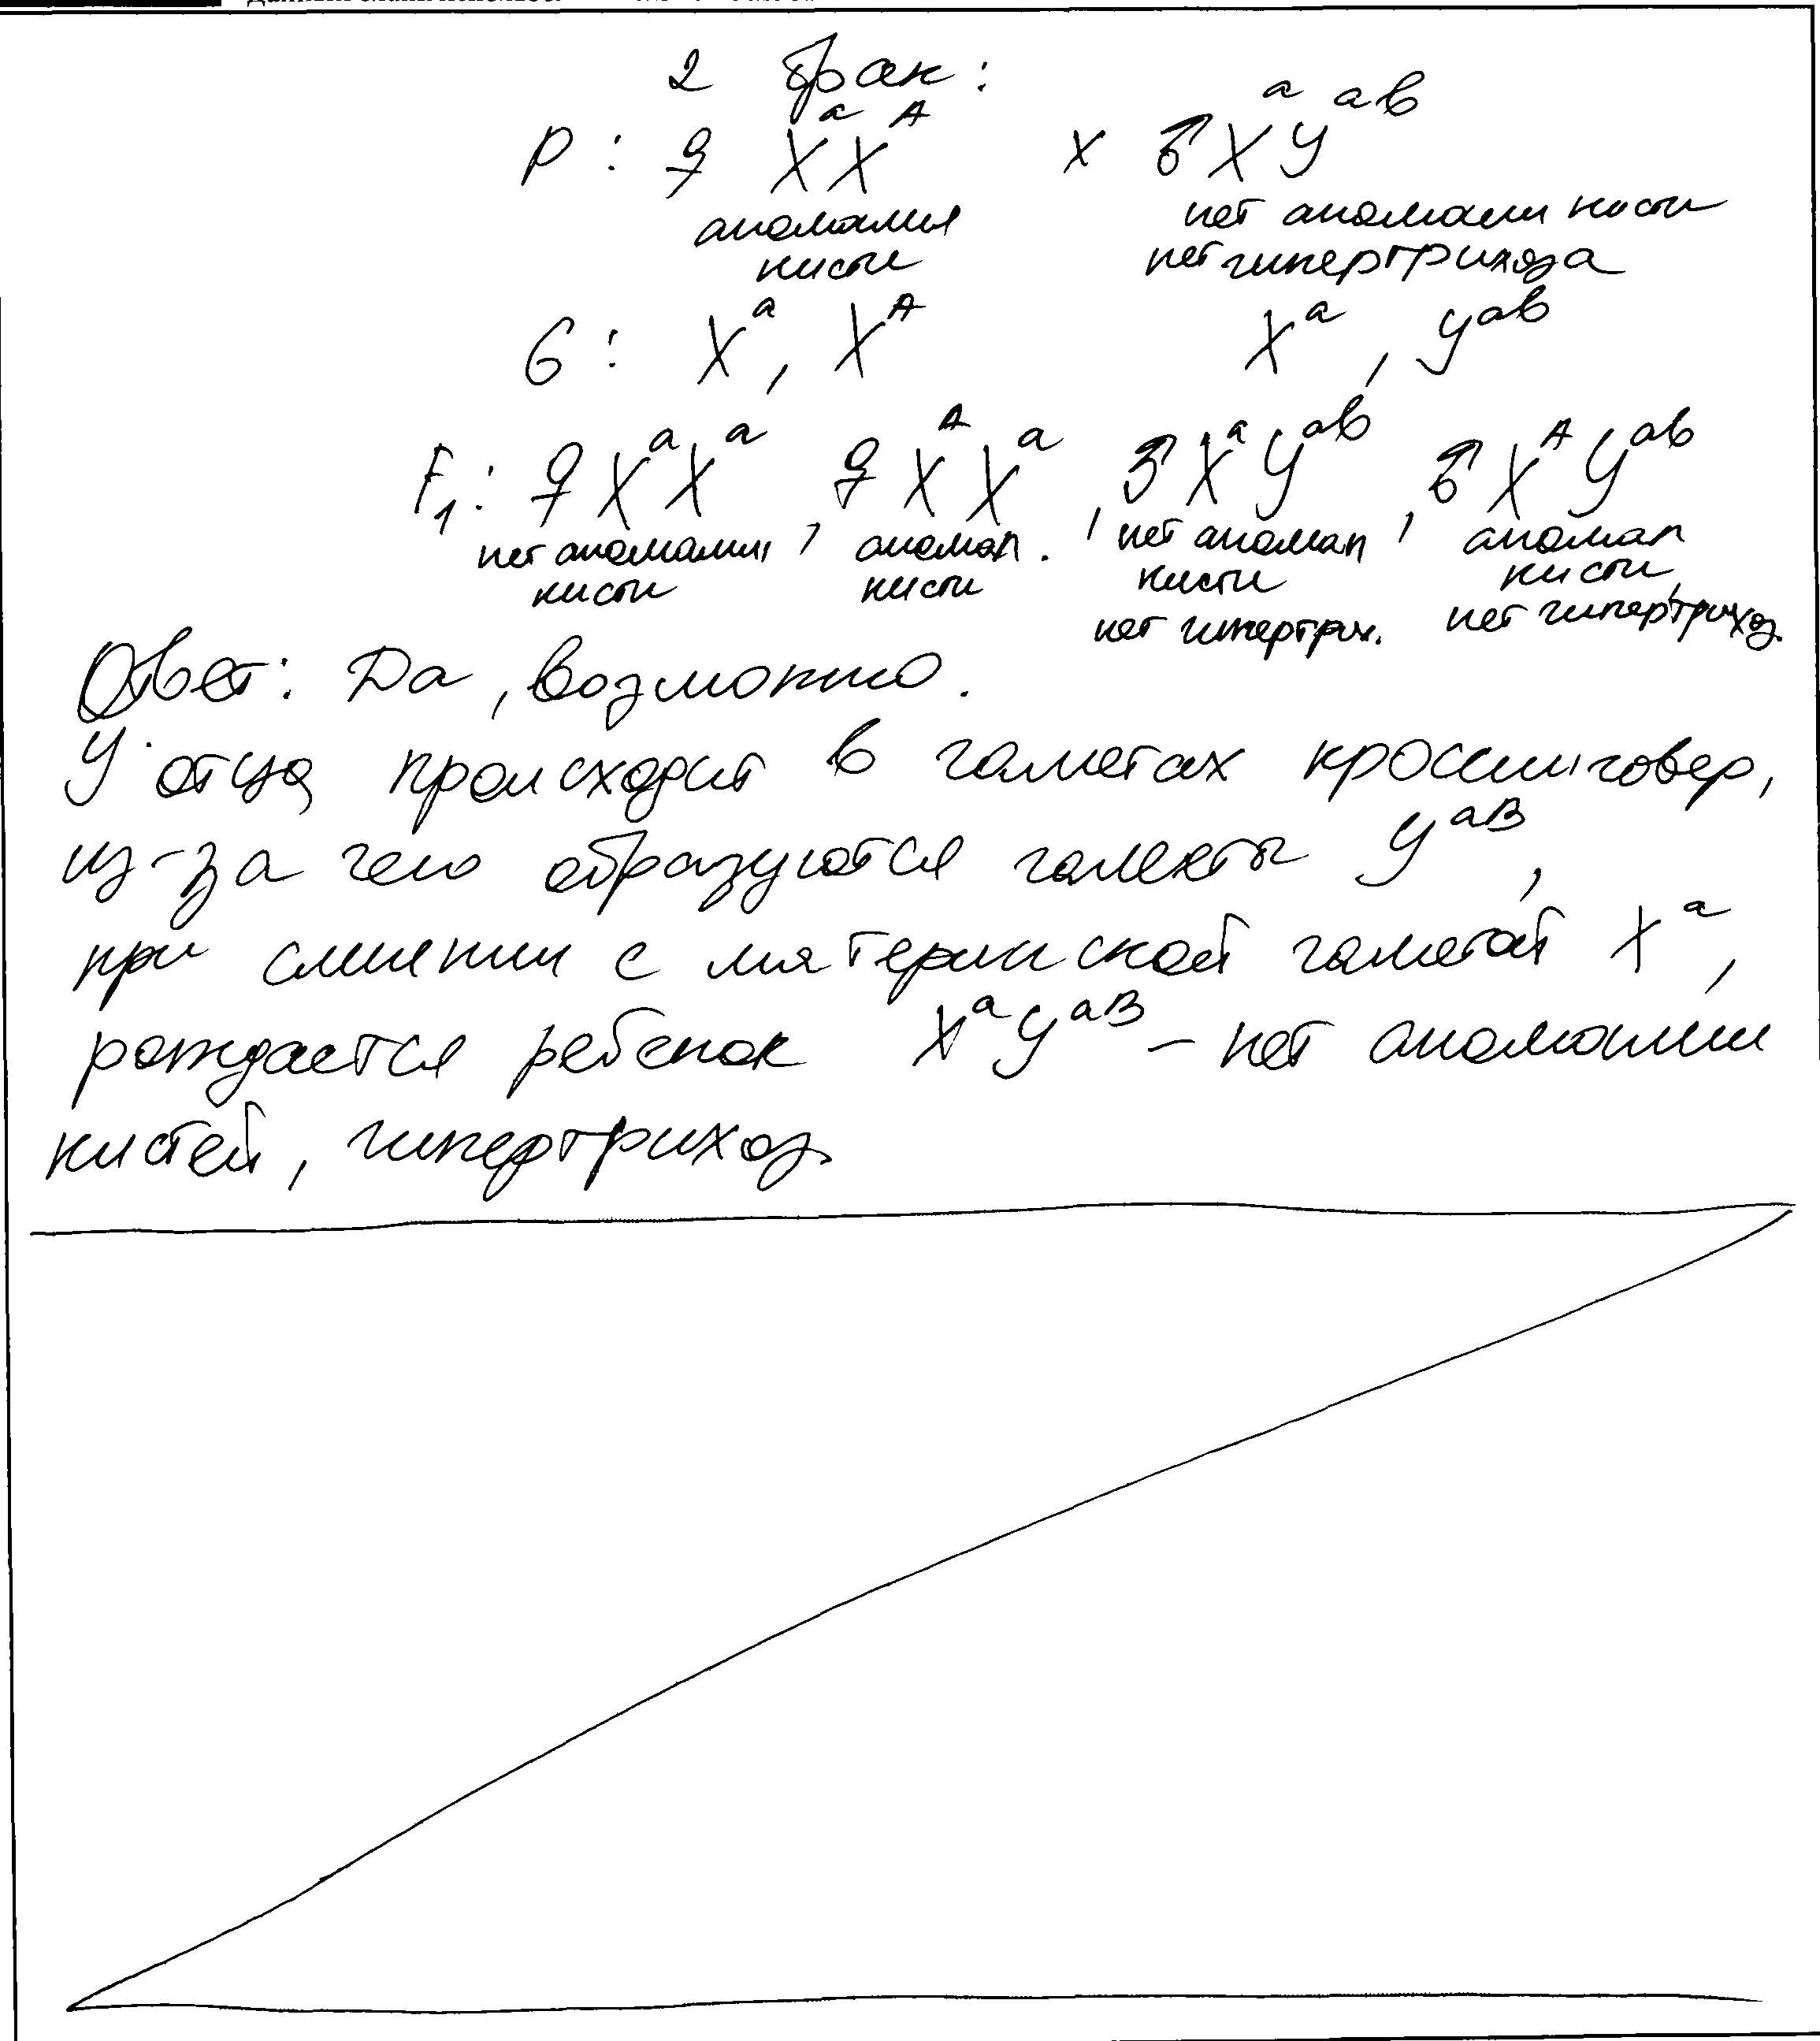 2 брак:
P: ♀ XᵃXᴬ x ♂ XᵃYᵃᵇ
аномалия нет аномалии кисти
кисти нет гипертрихоза
G: Xᵃ, Xᴬ Xᵃ, Yᵃᵇ
F₁: ♀ XᵃXᵃ, ♀ XᴬXᵃ, ♂ XᵃYᵃᵇ, ♂ XᴬYᵃᵇ
нет аномалии, аномал. нет аномал аномал
кисти кисти кисти кисти,
нет гипертрих. нет гипертрихоз.
Ответ: Да, возможно.
У отца происходит в гаметах кроссинговер,
из-за чего образуются гаметы Yᵃᴮ,
при слиянии с материнской гаметой Xᵃ,
рождается ребенок XᵃYᵃᴮ – нет аномалии
кистей, гипертрихоз